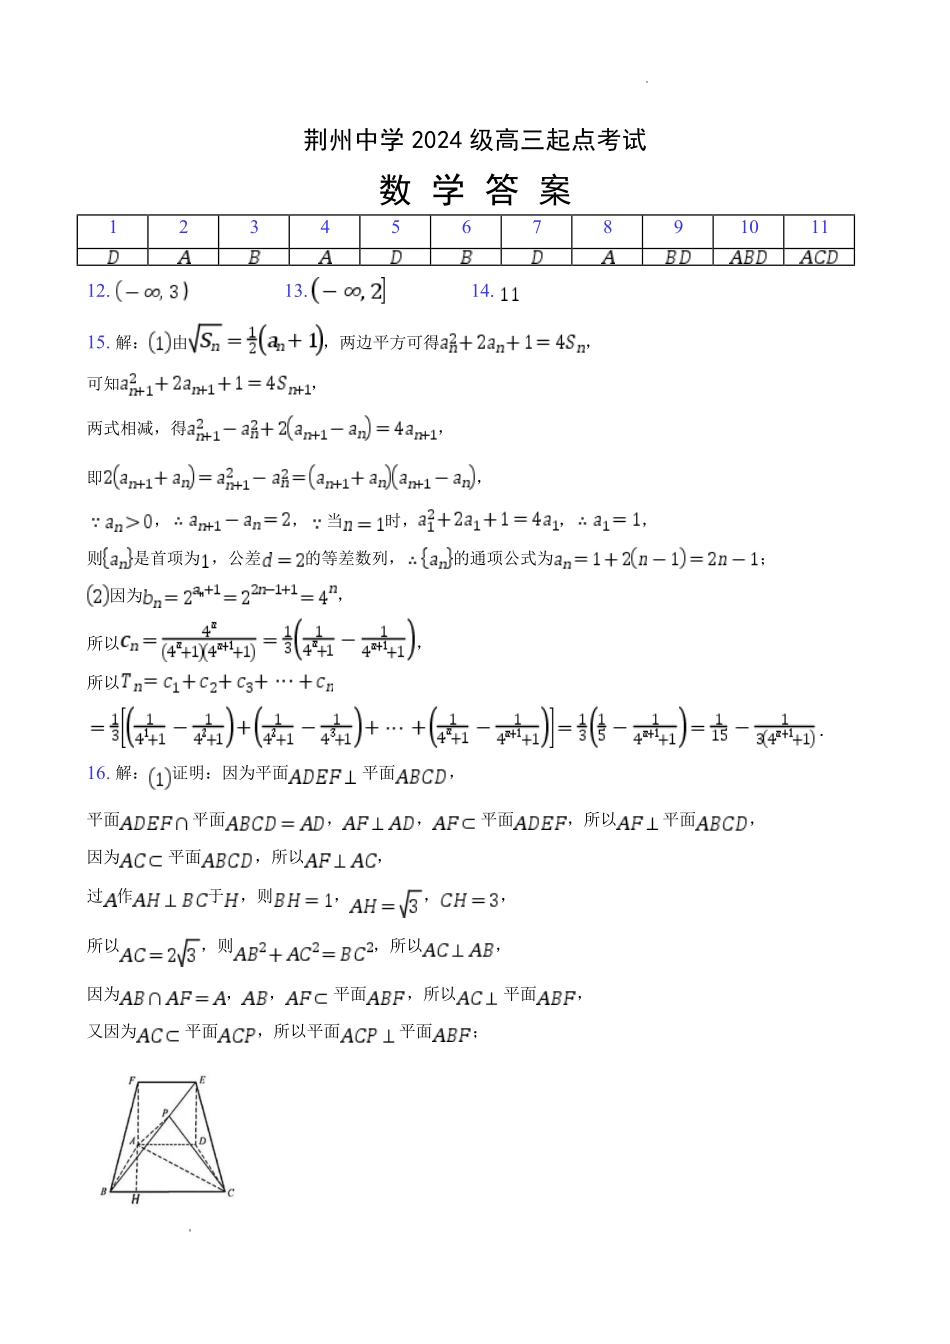 荆州中学 2024 级高三起点考试
数 学 答 案
1 2 3 4 5 6 7 8 9 10 11
D A B A D B D A BD ABD ACD
12. (−∞, 3) 13. (−∞, 2] 14. 11
15. 解：(1)由√Sₙ = 1/2(aₙ + 1)，两边平方可得aₙ² + 2aₙ + 1 = 4Sₙ，
可知aₙ₊₁² + 2aₙ₊₁ + 1 = 4Sₙ₊₁，
两式相减，得aₙ₊₁² − aₙ² + 2(aₙ₊₁ − aₙ) = 4aₙ₊₁，
即2(aₙ₊₁ + aₙ) = aₙ₊₁² − aₙ² = (aₙ₊₁ + aₙ)(aₙ₊₁ − aₙ)，
∵ aₙ > 0，∴ aₙ₊₁ − aₙ = 2，∵ 当n = 1时，a₁² + 2a₁ + 1 = 4a₁，∴ a₁ = 1，
则{aₙ}是首项为1，公差d = 2的等差数列，∴ {aₙ}的通项公式为aₙ = 1 + 2(n − 1) = 2n − 1；
(2)因为bₙ = 2^(aₙ+1) = 2^(2n−1+1) = 4ⁿ，
所以cₙ = 4ⁿ/((4ⁿ+1)(4ⁿ⁺¹+1)) = 1/3(1/(4ⁿ+1) − 1/(4ⁿ⁺¹+1))，
所以Tₙ = c₁ + c₂ + c₃ + ⋯ + cₙ
= 1/3[(1/(4¹+1) − 1/(4²+1)) + (1/(4²+1) − 1/(4³+1)) + ⋯ + (1/(4ⁿ+1) − 1/(4ⁿ⁺¹+1))] = 1/3(1/5 − 1/(4ⁿ⁺¹+1)) = 1/15 − 1/(3(4ⁿ⁺¹+1)).
16. 解：(1)证明：因为平面ADEF ⊥ 平面ABCD，
平面ADEF ∩ 平面ABCD = AD，AF ⊥ AD，AF ⊂ 平面ADEF，所以AF ⊥ 平面ABCD，
因为AC ⊂ 平面ABCD，所以AF ⊥ AC，
过A作AH ⊥ BC于H，则BH = 1，AH = √3，CH = 3，
所以AC = 2√3，则AB² + AC² = BC²，所以AC ⊥ AB，
因为AB ∩ AF = A，AB，AF ⊂ 平面ABF，所以AC ⊥ 平面ABF，
又因为AC ⊂ 平面ACP，所以平面ACP ⊥ 平面ABF；
F E
P
A D
B H C